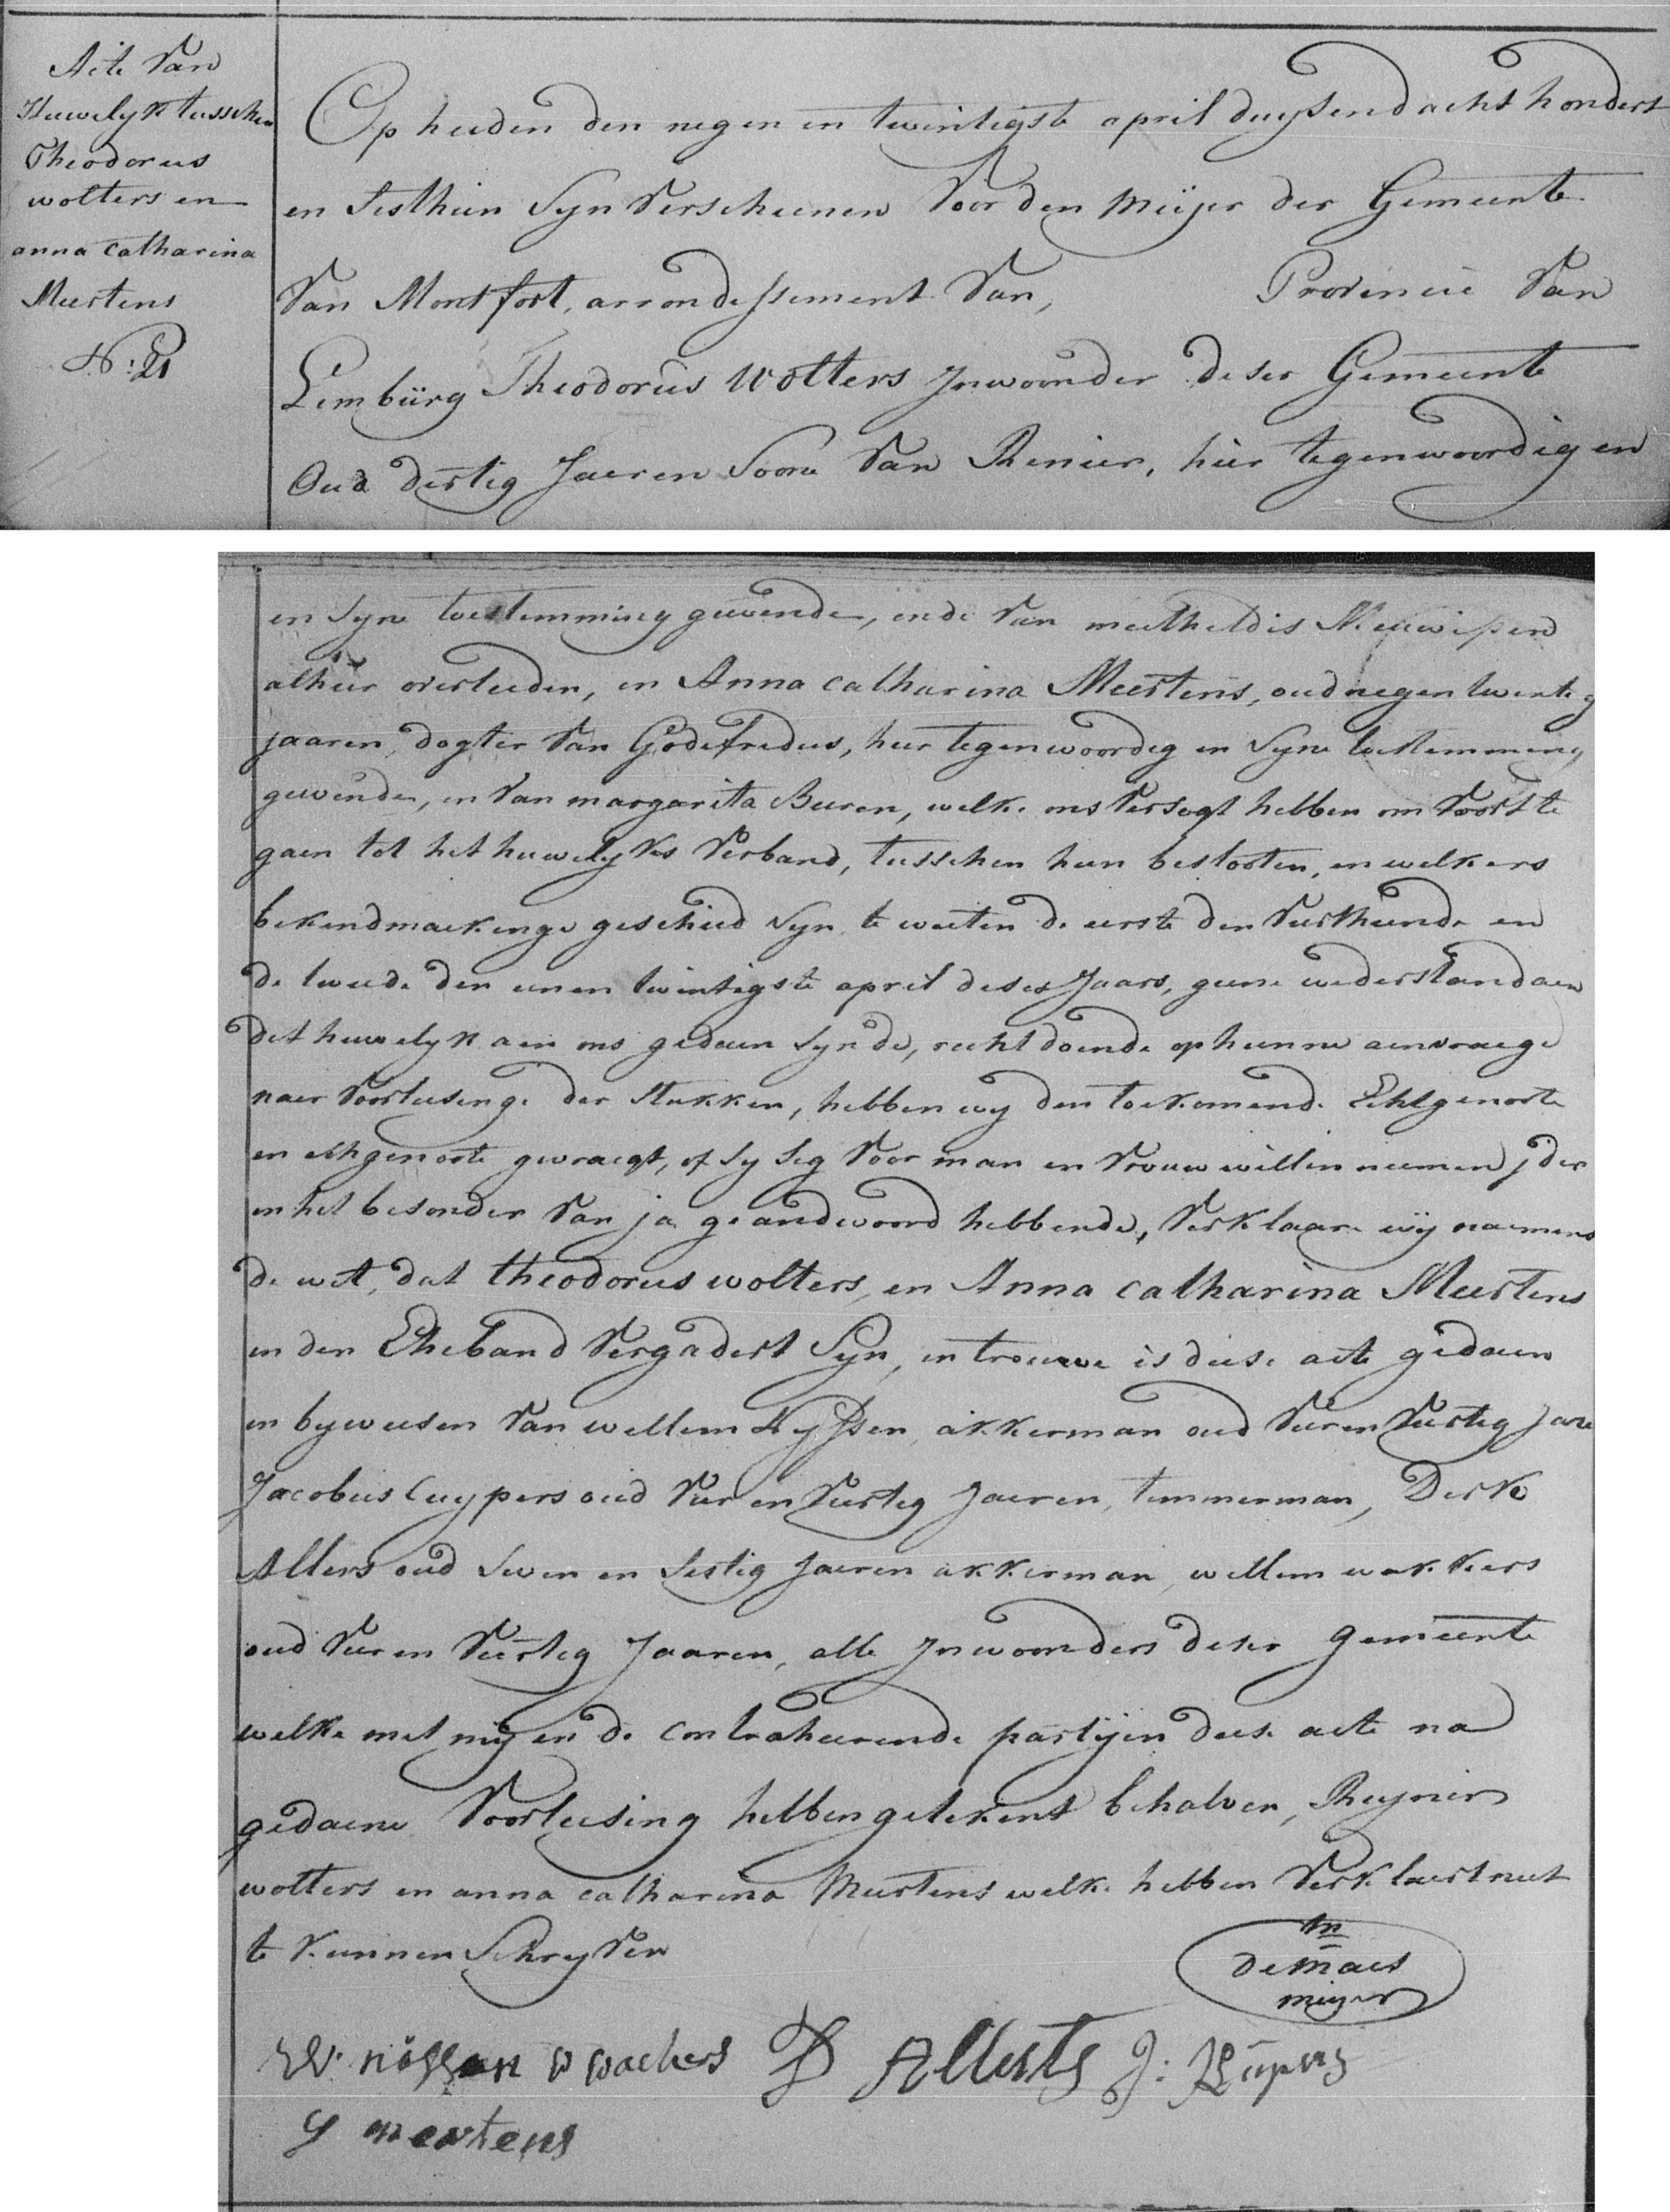 Acte Van
Huwelyk tusschen
Theodorus
wolters en
anna catharina
Meertens
N: 21
Op heeden den negen en twintigste april duysend acht hondert
en sesthien syn Verscheenen Voor den Meijer der Gemeente
Van Montfort, arrondessement Van, Provincie Van
Limbürg Theodorus Wolters Inwoonder deser Gemeente
Oud dertig Jaeren Soone Van Renier, hier tegenwoordig en
en syne toestemming geevende, ende Van meetheldis
alhier overleeden, en Anna catharina Meertens, oud negentwentig
jaaren, dogter Van Godefredus, hier tegenwoordig en syne toestemming
geevende, en Van margarita Beuren, welke ons Versogt hebben om Voort te
gaen tot het huwelykes Verband, tusschen hun beslooten, en welkers
bekendmaekinge geschied syn te weeten de eerste den Veerthiende en
de tweede den eenen twintigste april deses Jaars, geene wederstand aen
det huwelyk aen ons gedaen synde, recht doende op hunne aenvraege
naer Voorleesinge der stukken, hebben wy den toekomende Ehtgenoote
en ehtgenoote gevraegt, of sy seg Voor man en Vrouw willen neemen jder
en het besonder Van ja geandwoord hebbende, Verklaare wij naemens
de wet, dat theodorus wolters, en Anna catharina Meertens
en den Eheband Vergadert Syn, en trouwe is deese acte gedaen
en byweesen Van wellem Nyssen, akkerman oud Vier en Veertig Jare
Jacobus Cuypers oud Vier en Veertig Jaeren, temmerman, Derk
Allers oud seven en sestig Jaeren akkerman, wellem wakkers
oud Vier en Veertig Jaaren, alle Inwoonders deser gemeente
welke met mij en de contraheerende partijen deese acte na
gedaene Voorleesing hebben getekent behalven, Reynier
wolters en anna catharina Meertens welke hebben Verklaert neet
te kunnen Schryven
demaes
meijer
W. nössen W wackers D Allerts J: Küpers
G mertens